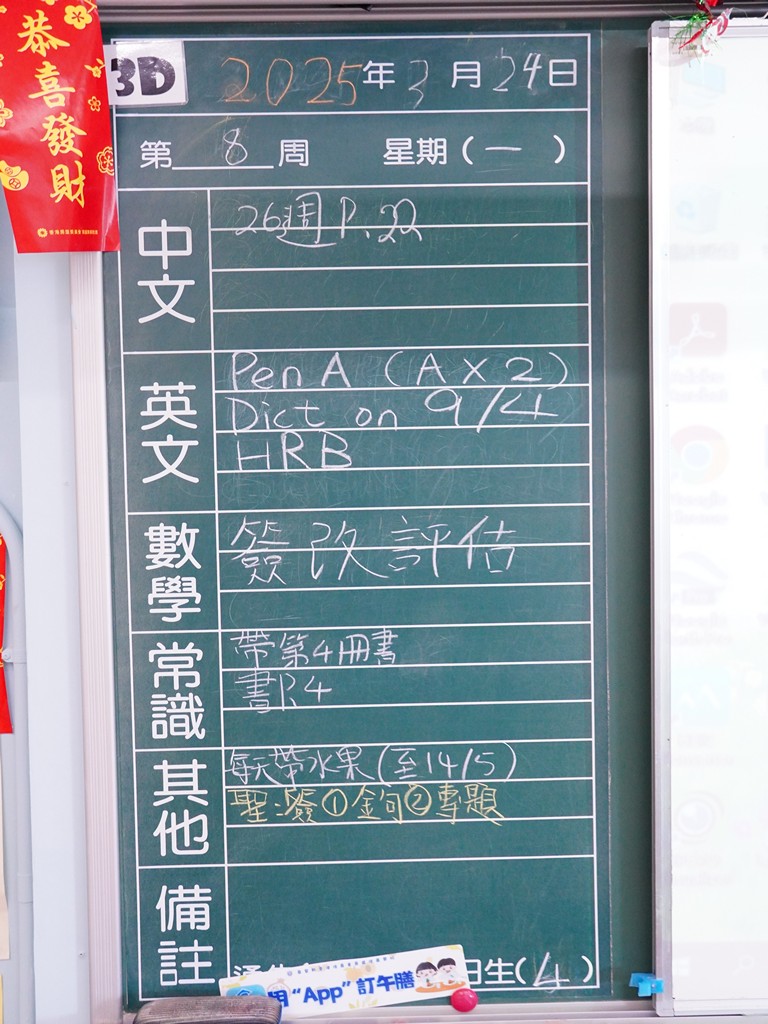 恭喜發財
3D
2025年3月24日
第8周 星期(一)
中文
26週 P.22
英文
Pen A (A X 2)
Dict on 9/4
HRB
數學
簽改評估
常識
帶第4冊書
書P.4
其他
每天帶水果(至14/5)
聖:簽①金句②專題
備註
日生(4)
用"App"訂午膳